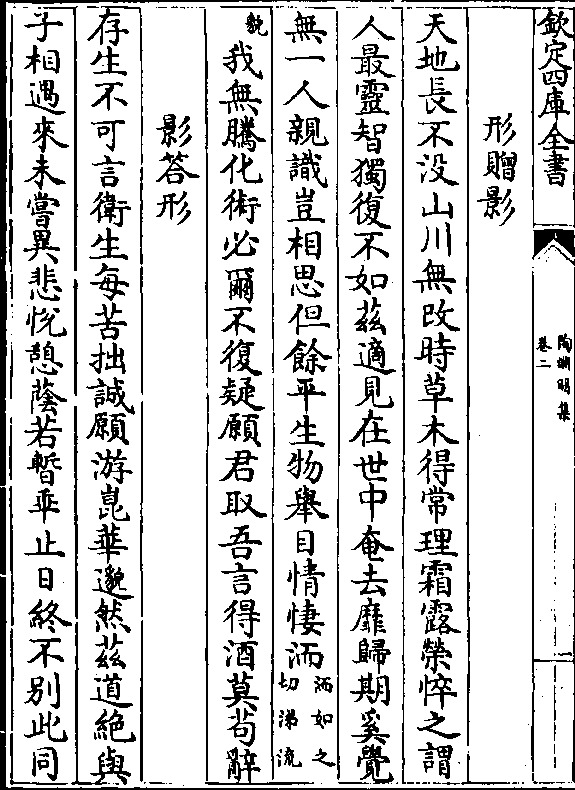 欽定四庫全書
陶淵明集
卷二
形贈影
天地長不没山川無改時草木得常理霜露榮悴之謂
人最靈智獨復不如兹適見在世中奄去靡歸期奚覺
無一人親識豈相思但餘平生物舉目情悽洏洏如之切涕流
貌我無騰化術必爾不復疑願君取吾言得酒莫苟辭
影荅形
存生不可言衛生每苦拙誠願游崑華邈然兹道絶與
子相遇來未嘗異悲悅憩蔭若暫乖止日終不別此同